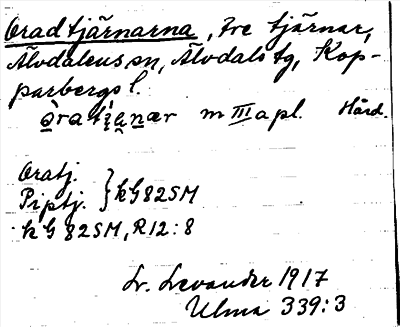 Oradtjärnarna, tre tjärnar,
Älvdalens sn, Älvdals tg, Kop-
parbergs l.
m III a pl. Hård.
Oratj. } kG82SM
Piptj.
kG 82SM, R12:8
Lr. Levander 1917
Ulma 339:3